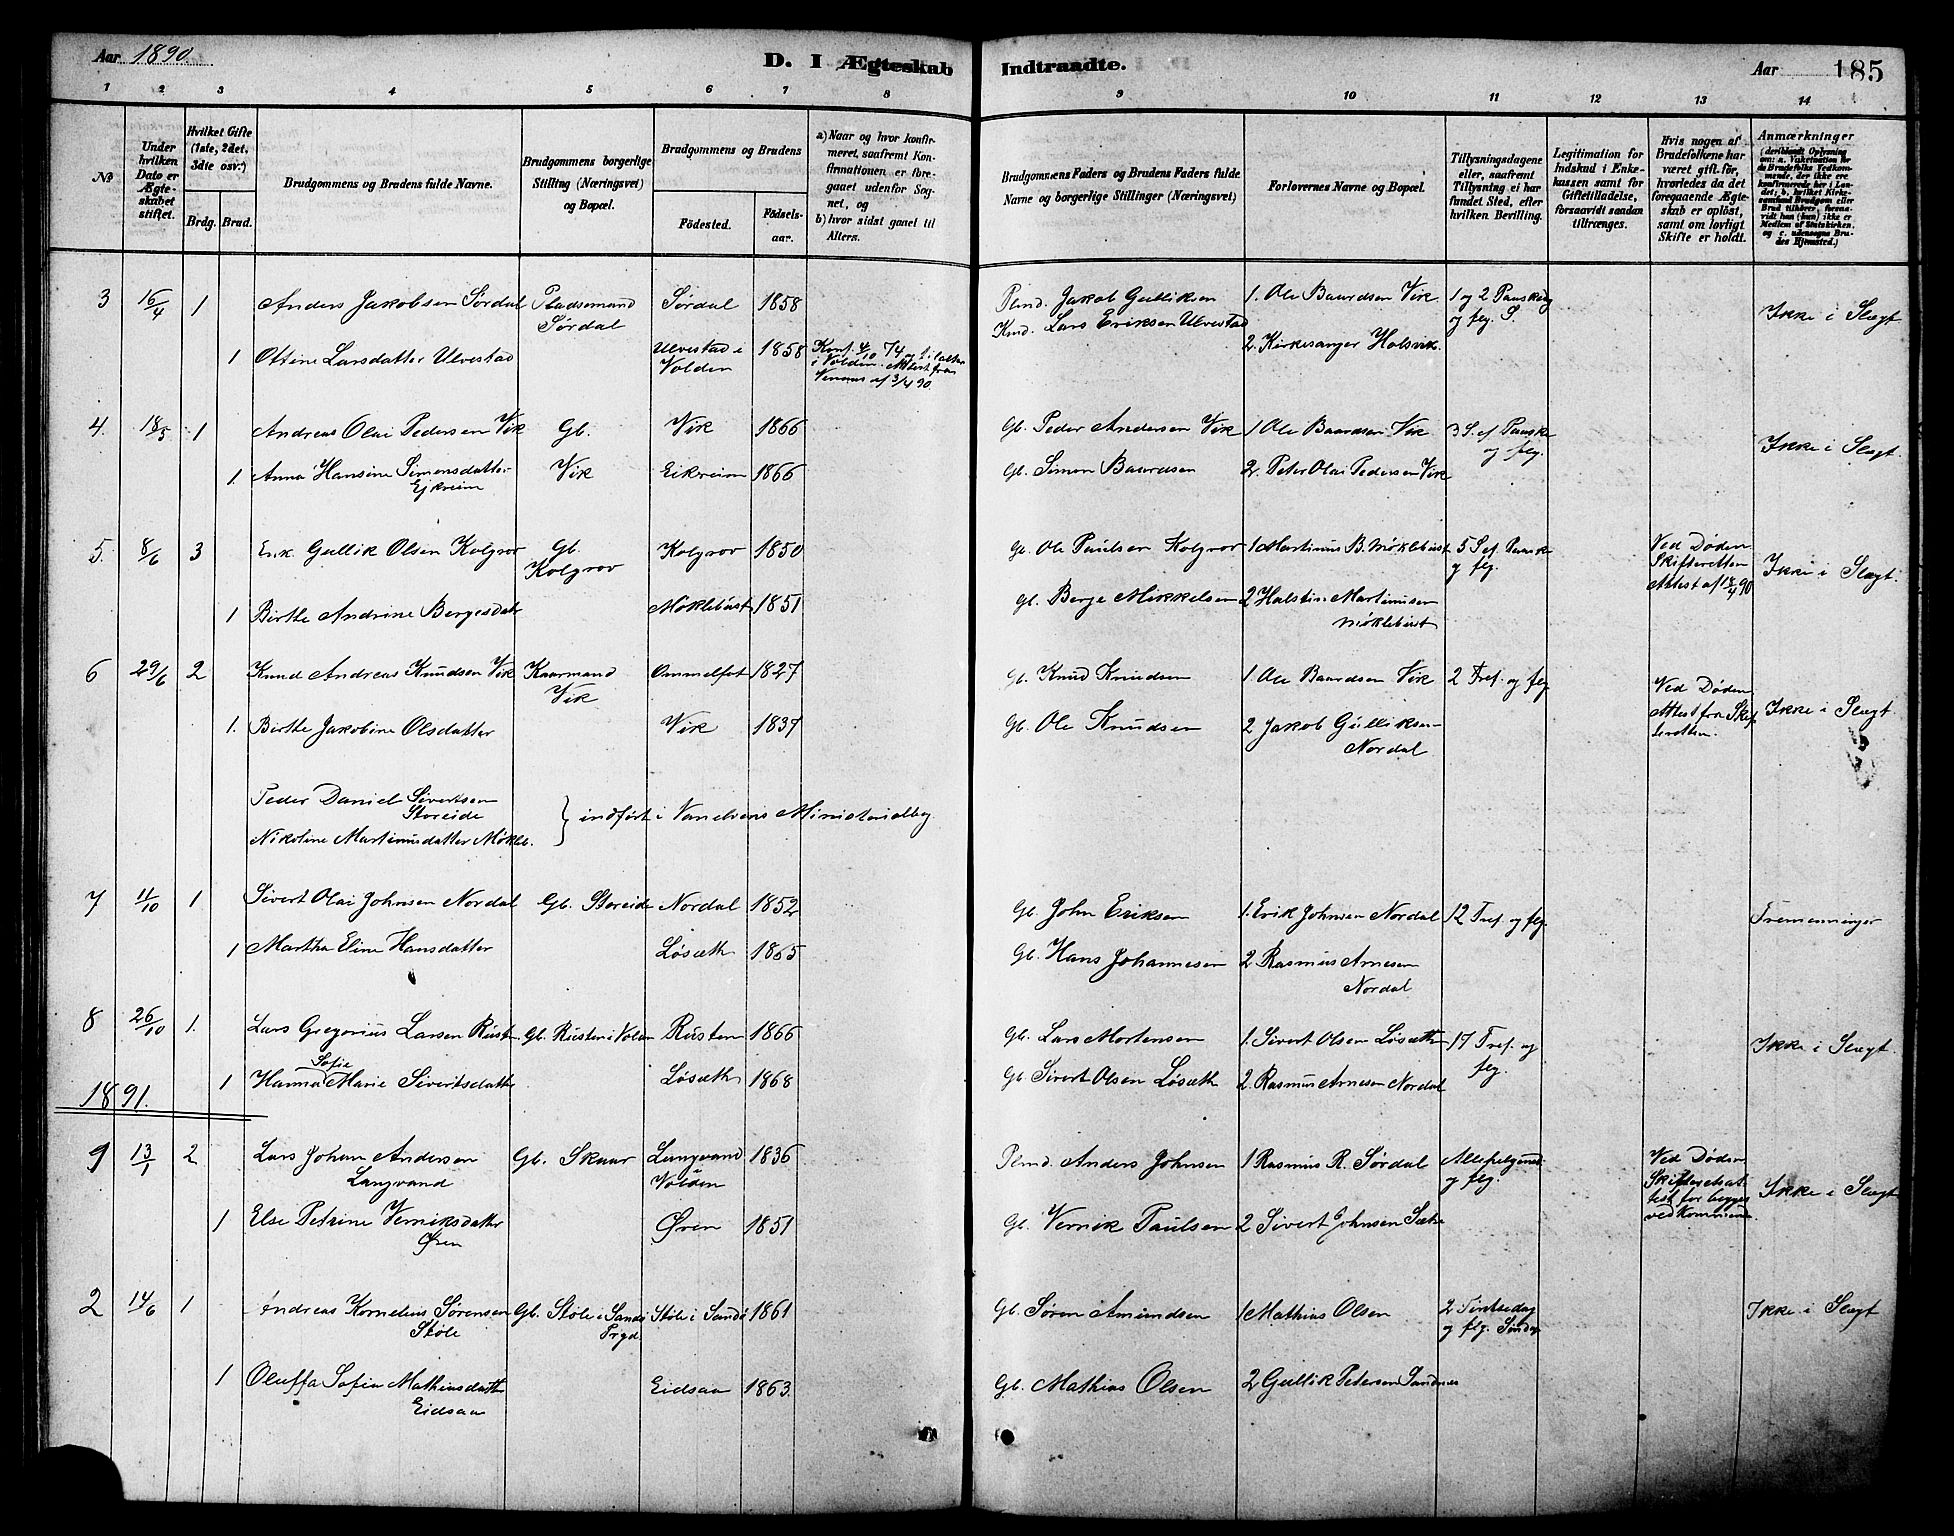 Aar 1890. D. I Ægteskab Indtraadte. Aar 185
1 2 3 4 5 6 7 8 9 10 11 12 13 14
No
Under hvilken Dato er Ægteskabet stiftet.
Hvilket Gifte (1ste, 2det, 3die osv.)
Brdg. Brud.
Brudgommens og Brudens fulde Navne.
Brudgommens borgerlige Stilling (Næringsvei) og Bopæl.
Brudgommens og Brudens
Fødested. Fødselsaar.
a) Naar og hvor konfirmeret, saafremt Konfirmationen er foregaaet udenfor Sognet, og
b) hvor sidst gaaet til Alters.
Brudgommens Faders og Brudens Faders fulde Navne og borgerlige Stillinger (Næringsvei)
Forlovernes Navne og Bopæl.
Tillysningsdagene eller, saafremt Tillysning ei har fundet Sted, efter hvilken Bevilling.
Legitimation for Indskud i Enkekassen samt for Giftetilladelse, forsaavidt saadan tiltrænges.
Hvis nogen af Brudefolkene har været gift før, hvorledes da det foregaaende Ægteskab er opløst, samt om lovligt Skifte er holdt.
Anmærkninger
3 16/4 1 Anders Jakobsen Sørdal Pladsemand Sørdal 1858 Plmd. Jakob Gulliksen 1. Ole Baardsen Vik 1 og 2 Paaskedag Ikke i Slægt
Sørdal Knd. Lars Eriksen Ulvestad og flg. S.
1 Ottine Larsdatter Ulvestad Ulvestad i 1858 Konf. 4/10 74 og t. i alter 2. Kirkesanger Halsvik.
Volden i Volden. Attest fra
af 3/4 90.
4. 18/5 1 Andreas Olai Pedersen Vik Gb. Vik 1866 Gb. Peder Andersen Vik 1 Ole Baardsen Vik 3 S. ef Paaske Ikke i Slægt.
og flg.
1. Anna Hansine Simensdatter Vik Eikreim 1866 Gb. Simon Baardsen 2. Peter Olai Pedersen Vik
Ejkreim
5. 8/6 3 Enk. Gullik Olsen Kolgrov Gb. Kolgrov 1850 Gb. Ole Paulsen Kolgrov 1 Martinus B. Møklebust 5 S ef. Paaske Ved Døden Ikke i Slægt.
Kolgrov og flg. Skifteretten
Attest af 18/4 90
1 Birthe Andrine Bergesdatr Møklebust 1851 Gb. Berge Mikkelsen 2 Halstin Martinusen
Møklebust
6 29/6 2 Knud Andreas Knudsen Vik Kaarmand Ommelfot 1827 Gb. Knud Knudsen 1. Ole Baardsen Vik 2 Tref. og flg Ved Døden Ikke i Slægt.
Vik Attest fra Skif
teretten.
1. Birthe Jakobine Olsdatter Vik 1837 Gb. Ole Knudsen 2 Jakob Gulliksen
Nordal
Peder Daniel Sivertsen
Storeide
Nikoline Martinusdatter Møkleb. } indført i Vanelvens Ministerialbog
7 11/10 1 Sivert Olai Johnsen Nordal Gb. Storeide Nordal 1852 Gb. John Eriksen 1. Erik Johnsen Nordal 12 Tref. og flg. Tremenninger
1 Martha Eline Hansdatter Løsæth 1865 Gb. Hans Johannesen 2 Rasmus Arnesen
Nordal
8 26/10 1. Lars Gregorius Larsen Rusten Gb. Rusten i Volden Rusten 1866 Gb. Lars Mortensen 1. Sivert Olsen Løsæth 17 Tref. og Ikke i Slægt.
flg.
Sofie
1 Hanna Marie Sivertsdatter Løsæth 1868 Gb. Sivert Olsen Løsæth 2. Rasmus Arnesen Nordal
1891.
9 13/1 2 Lars Johan Andersen Gb. Skaar Langvand 1836 Plmd. Anders Johnsen 1 Rasmus R. Sørdal Allehelgensd Ved Døden Ikke i Slægt
Langvand Volden og flg. Skifteretsat
test for begges
vedkommende.
1 Else Petrine Verniksdatter Øren 1851 Gb. Vernik Paulsen 2 Sivert Johnsen
Øren
2 14/6 1 Andreas Kornelius Sørensen Gb. Støle i Sandø Støle i Sandø 1861 Gb. Søren Amundsen 1 Mathias Olsen 2 Pintsedag Ikke i Slægt
Støle Prgd og flg. Søndag
1 Oluffa Sofie Mathiasdatter Eidsaa 1863. Gb. Mathias Olsen 2 Gullik Petersen Sandnes
Eidsaa